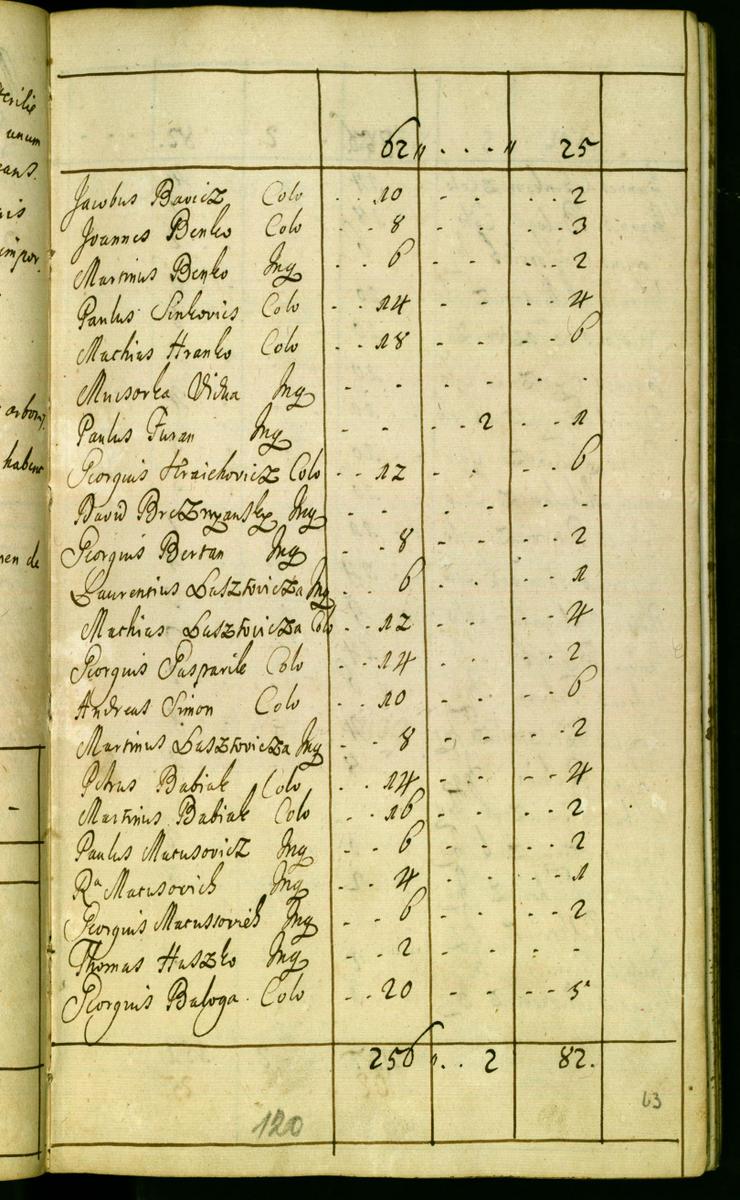 terilis
unum
eans.
uis
impor.
arbor.
habent
men de
62 „ . . . „ 25
Jacobus Bavicz Colo . . 10 - - . . 2
Joannes Benko Colo . . 8 - - . . 3
Martinus Benko Inq . . 6 - - . . 2
Paulus Sinkovics Colo . . 14 - - . . 4
Mathias Hranko Colo . . 18 - - . . 6
Vidua Inq - - - - - -
Paulus Furan Inq - - . . 2 . . 1
Georgius Hraichovicz Colo . . 12 - - . . 6
David Breznyansky Inq - - - - - -
Georgius Bertan Inq . . 8 - - . . 2
Laurentius Lasztovicza Inq . . 6 - - . . 1
Mathias Lasztovicza Colo . . 12 - - . . 4
Georgius Gasparik Colo . . 14 - - . . 2
Andreas Simon Colo . . 10 - - . . 6
Martinus Lasztovicza Inq . . 8 - - . . 2
Petrus Babiak Colo . . 14 - - . . 4
Martinus Babiak Colo . . 16 - - . . 2
Paulus Matusovicz Inq . . 6 - - . . 2
Ra Matusovich Inq . . 4 - - . . 1
Georgius Matussovich Inq . . 6 - - . . 2
Thomas Haszko Inq . . 2 - - - -
Georgius Baloga Colo . . 20 - - . . 5
256 „ . . 2 82.
63
120